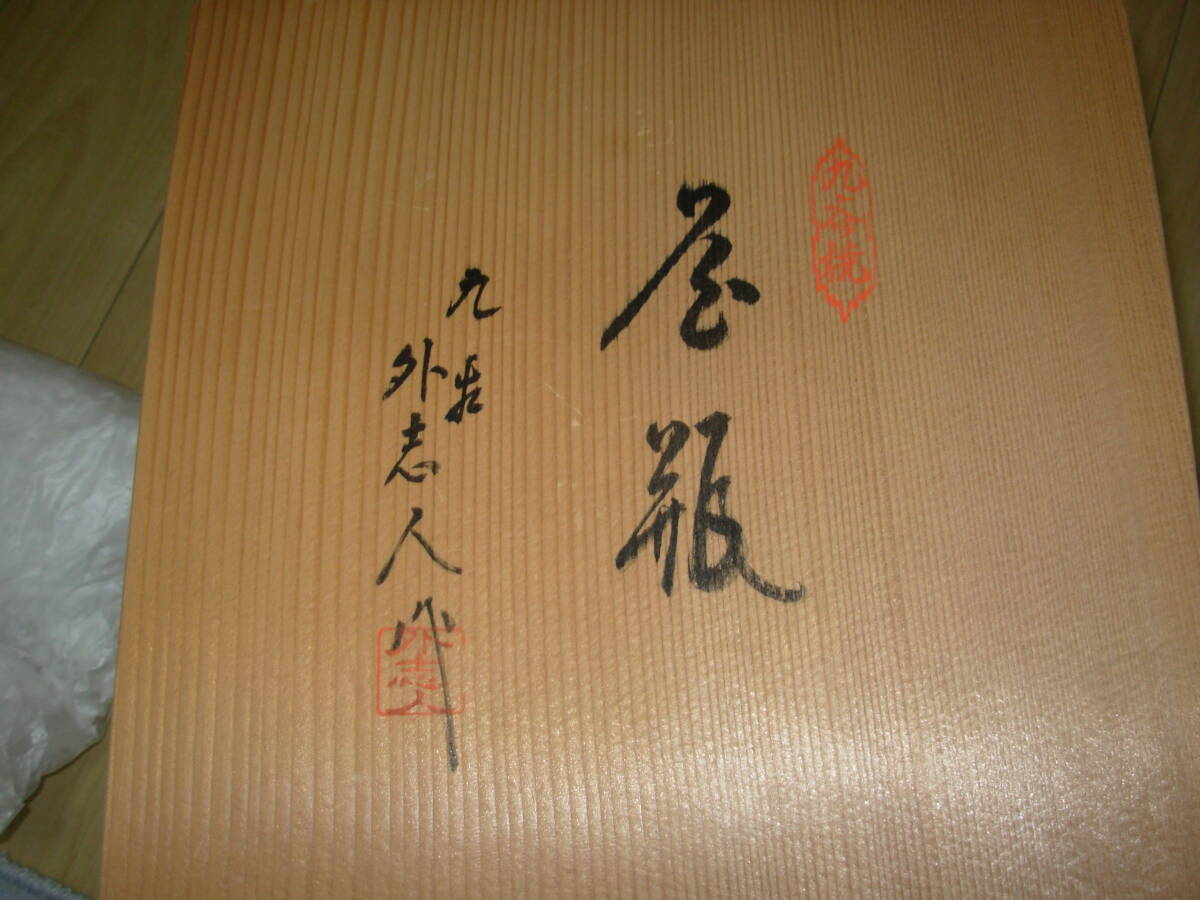 九谷焼
花瓶
九谷
外志人作
外志人